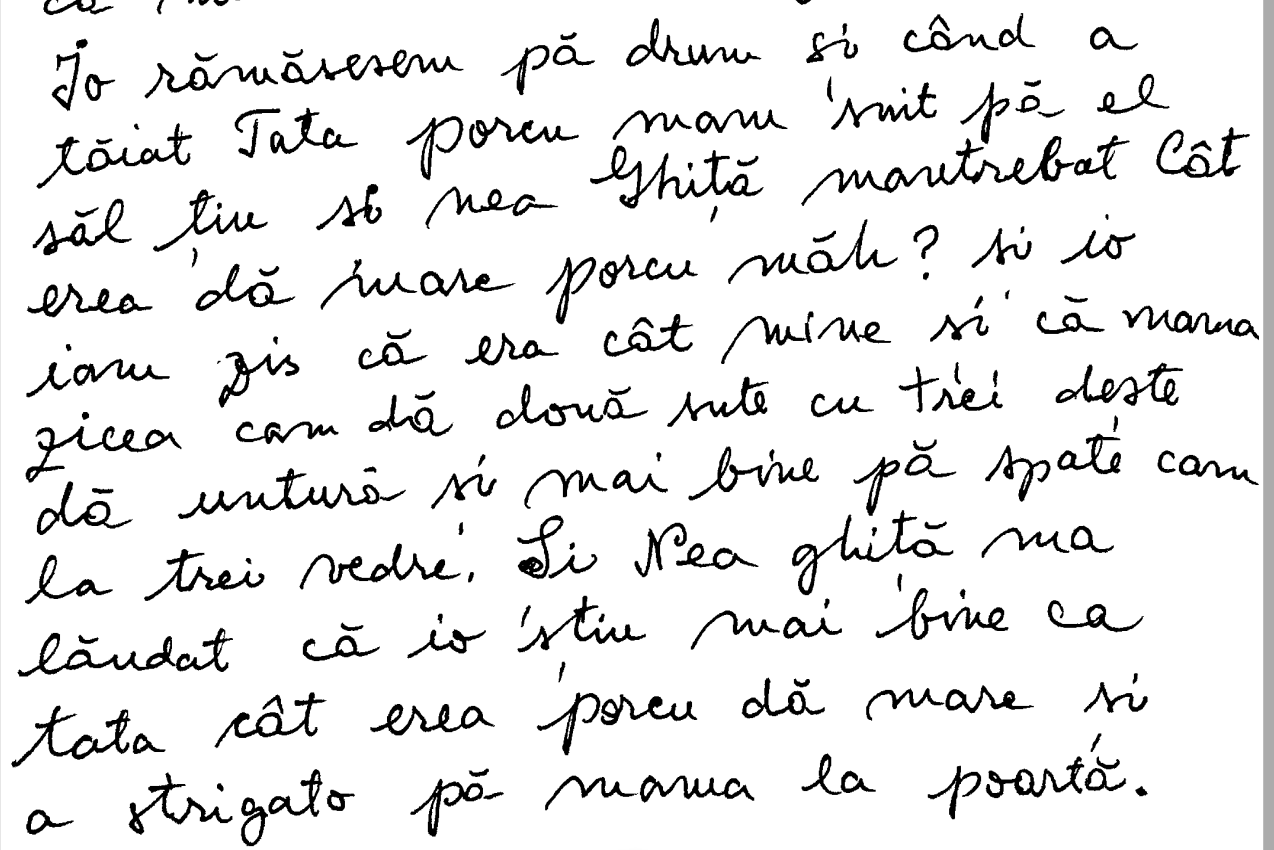 Io rămăsesem pă drum și când a
tăiat Tata porcu mam suit pă el
săl țiu si nea Ghiță mautrebat Cât
erea dă mare porcu măh? si io
iam zis că era cât mine si că mama
zicea cam dă două sute cu trei dește
dă untură si mai bine pă spate cam
la trei vedre. Si Nea ghită ma
lăudat că io știu mai bine ca
tata cât erea porcu dă mare si
a strigato pă mama la poartă.